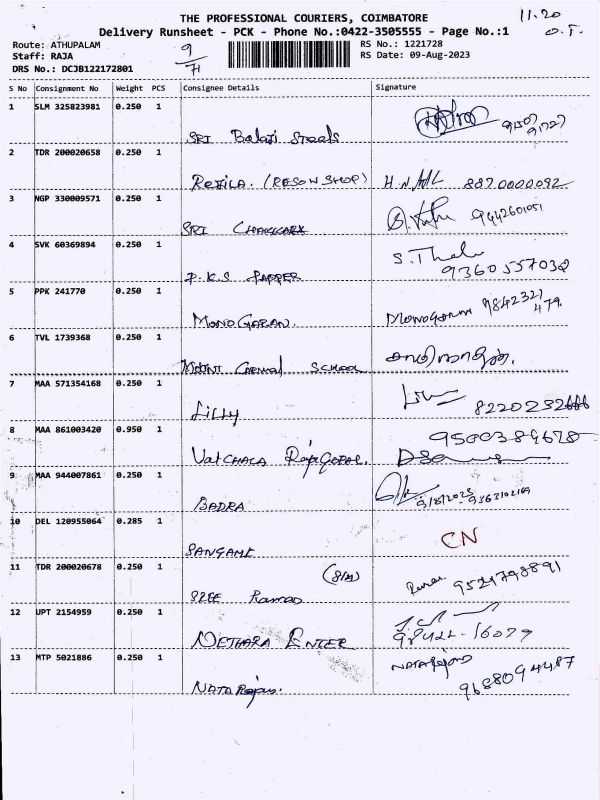 THE PROFESSIONAL COURIERS, COIMBATORE
11.20
Delivery Runsheet - PCK - Phone No.:0422-3505555 - Page No.:1
O.T.
Route: ATHUPALAM
RS No.: 1221728
Staff: RAJA
9/71
RS Date: 09-Aug-2023
DRS No.: DCJB122172801
S No Consignment No Weight PCS Consignee Details Signature
1 SLM 325823981 0.250 1
SRI Balaji Steels
2 TDR 200020658 0.250 1
Rejila. (RESOW SHOP) 8870000092
3 NGP 330009571 0.250 1
SRI 9442601051
4 SVK 60369894 0.250 1
P.K.S PAPPER S. 9360557038
5 PPK 241770 0.250 1
MONO GARAN. MONOGARAN 9842321479
6 TVL 1739368 0.250 1
MOUNT Carmal SCHOOL
7 MAA 571354168 0.250 1
Lilly 8220232666
8 MAA 861003420 0.950 1
VatCHALA RajaGOBAL. 9500389678
9 MAA 944007861 0.250 1
BADRA 9/8/2023 9363102169
10 DEL 120955064 0.285 1
SANGAMI CN
11 TDR 200020678 0.250 1
SREE Ramas 9524798891
12 UPT 2154959 0.250 1
NETHARA ENTER 98422-16079
13 MTP 5021886 0.250 1
NATARajan. NATARajan 9688094487